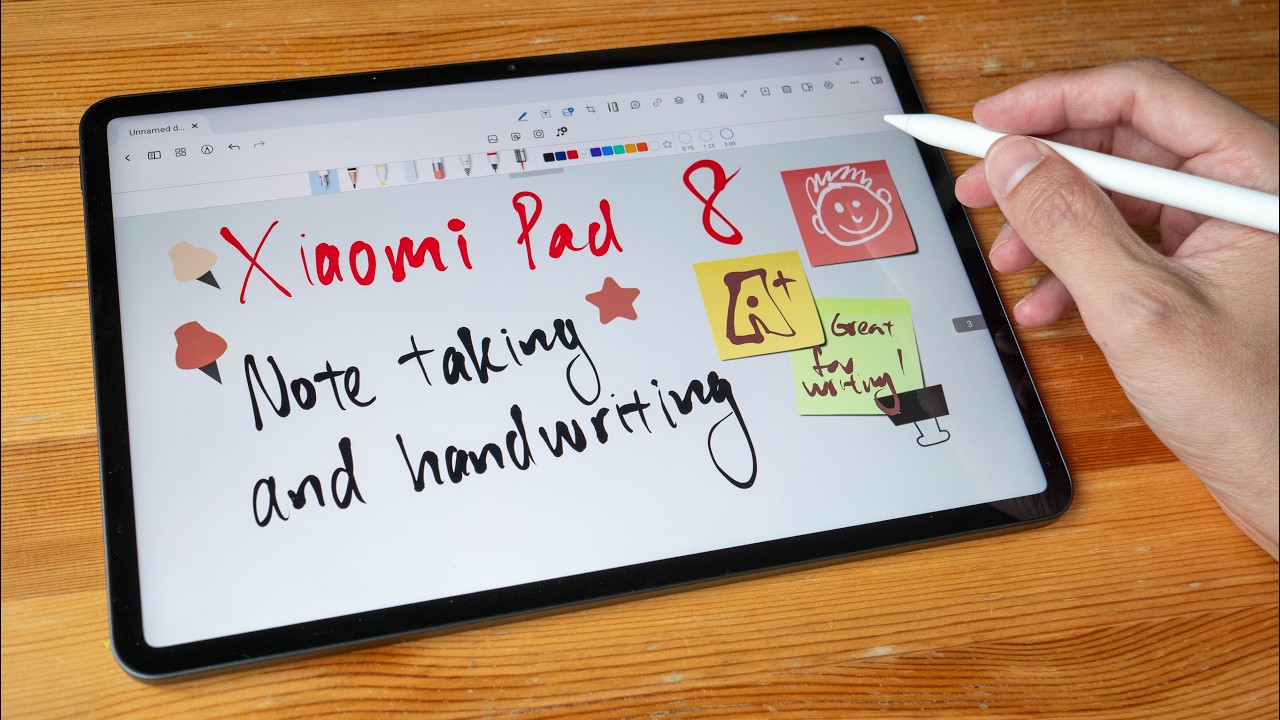 Unnamed d...
0.75 1.25 3.00
Xiaomi Pad 8
A+
Great
for
writing!
3
Note taking
and handwriting